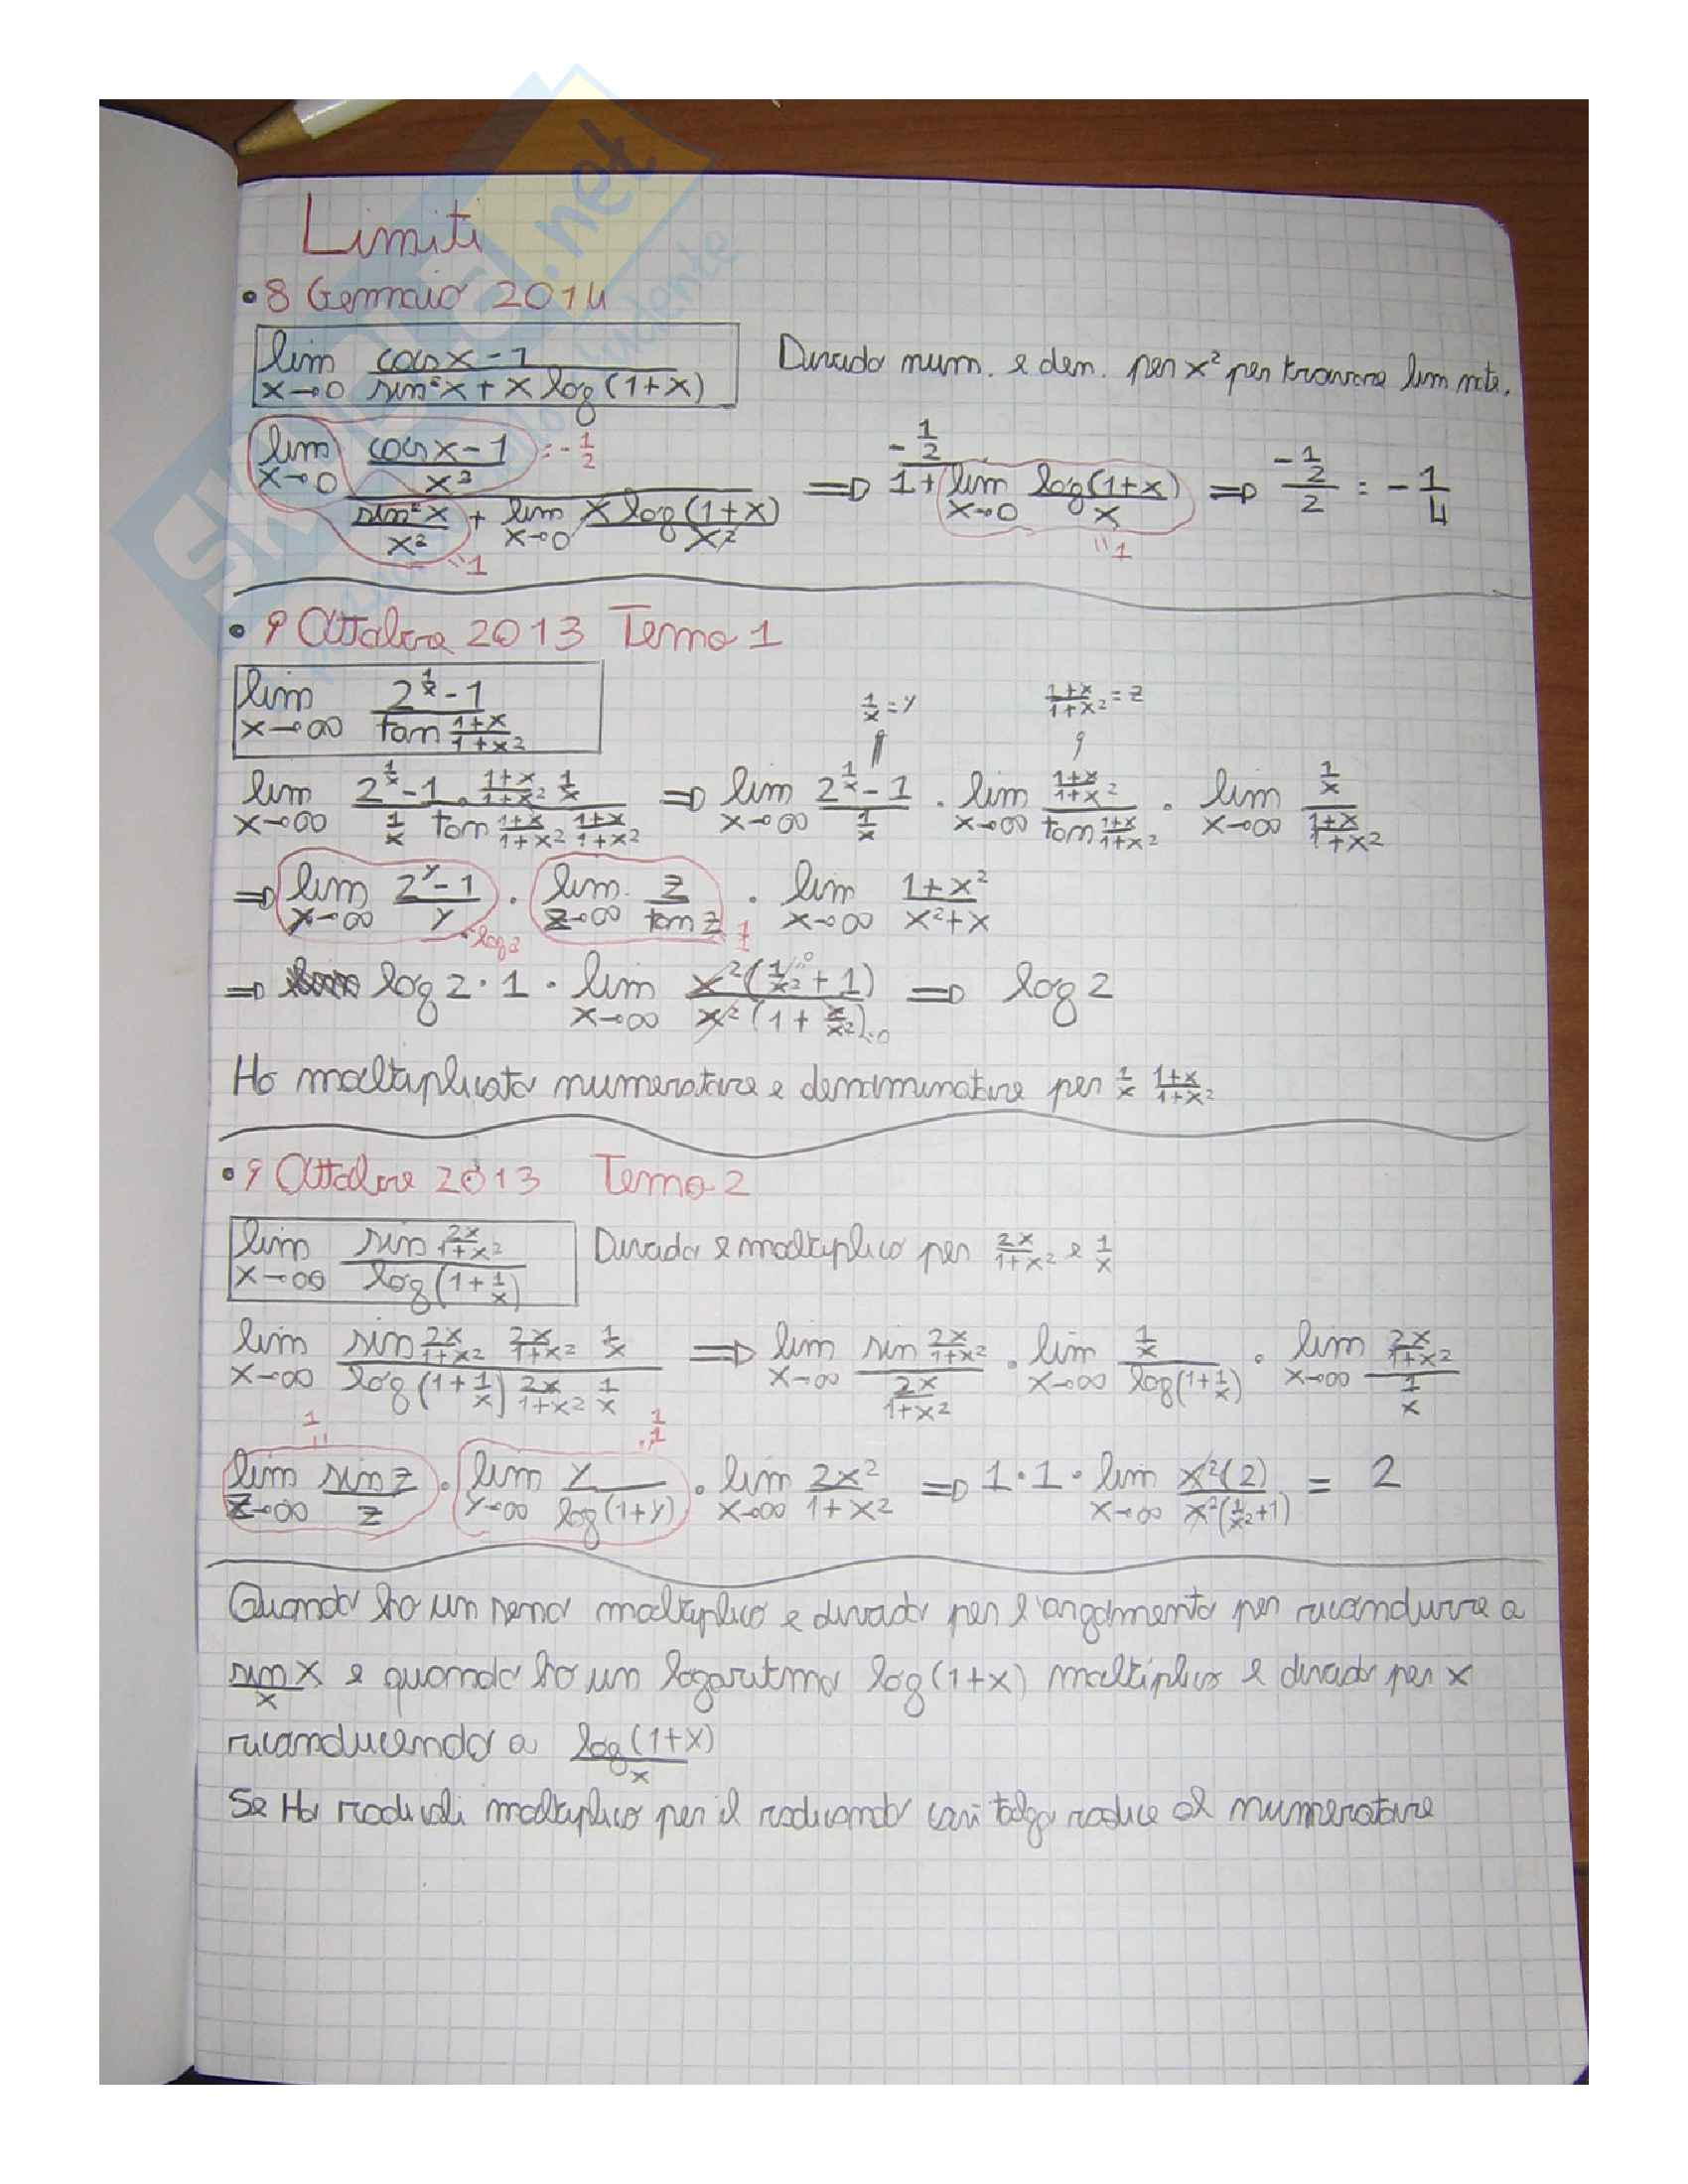 Limiti
• 8 Gennaio 2014
lim x→0 (cos x - 1)/(sin²x + x log(1+x)) Divido num. e den. per x² per trovare lim note.
lim x→0 ((cos x - 1)/x²)/(sin²x/x² + lim x→0 x log(1+x)/x²) = -1/2 "1 ⇒ (-1/2)/(1 + lim x→0 log(1+x)/x) "1 ⇒ (-1/2)/2 = -1/4
• 9 Ottobre 2013 Tema 1
lim x→∞ (2^(1/x) - 1)/(tan (1+x)/(1+x²)) 1/x = y (1+x)/(1+x²) = z
lim x→∞ (2^(1/x) - 1)/(1/x) · ((1+x)/(1+x²) 1/x)/(tan (1+x)/(1+x²) (1+x)/(1+x²)) ⇒ lim x→∞ (2^(1/x) - 1)/(1/x) · lim x→∞ ((1+x)/(1+x²))/(tan (1+x)/(1+x²)) · lim x→∞ (1/x)/((1+x)/(1+x²))
⇒ lim x→∞ (2^y - 1)/y = log 2 · lim z→∞ z/(tan z) = 1 · lim x→∞ (1+x²)/(x²+x)
⇒ log 2 · 1 · lim x→∞ (x²(1/x² + 1))/(x²(1 + x/x²)) ⇒ log 2
Ho moltiplicato numeratore e denominatore per 1/x (1+x)/(1+x²)
• 9 Ottobre 2013 Tema 2
lim x→∞ (sin 2x/(1+x²))/(log(1+1/x)) Divido e moltiplico per 2x/(1+x²) e 1/x
lim x→∞ (sin 2x/(1+x²) 2x/(1+x²) 1/x)/(log(1+1/x) 2x/(1+x²) 1/x) ⇒ lim x→∞ (sin 2x/(1+x²))/(2x/(1+x²)) · lim x→∞ (1/x)/(log(1+1/x)) · lim x→∞ (2x/(1+x²))/(1/x)
1 1
lim z→∞ (sin z)/z · lim y→∞ y/(log(1+y)) · lim x→∞ 2x²/(1+x²) ⇒ 1·1· lim x→∞ (x²(2))/(x²(1/x²+1)) = 2
Quando ho un seno moltiplico e divido per l'argomento per ricondurre a
sin x/x e quando ho un logaritmo log(1+x) moltiplico e divido per x
riconducendo a log(1+x)/x
Se Ho radicali moltiplico per il radicando così tolgo radice al numeratore
SKUOLA.net